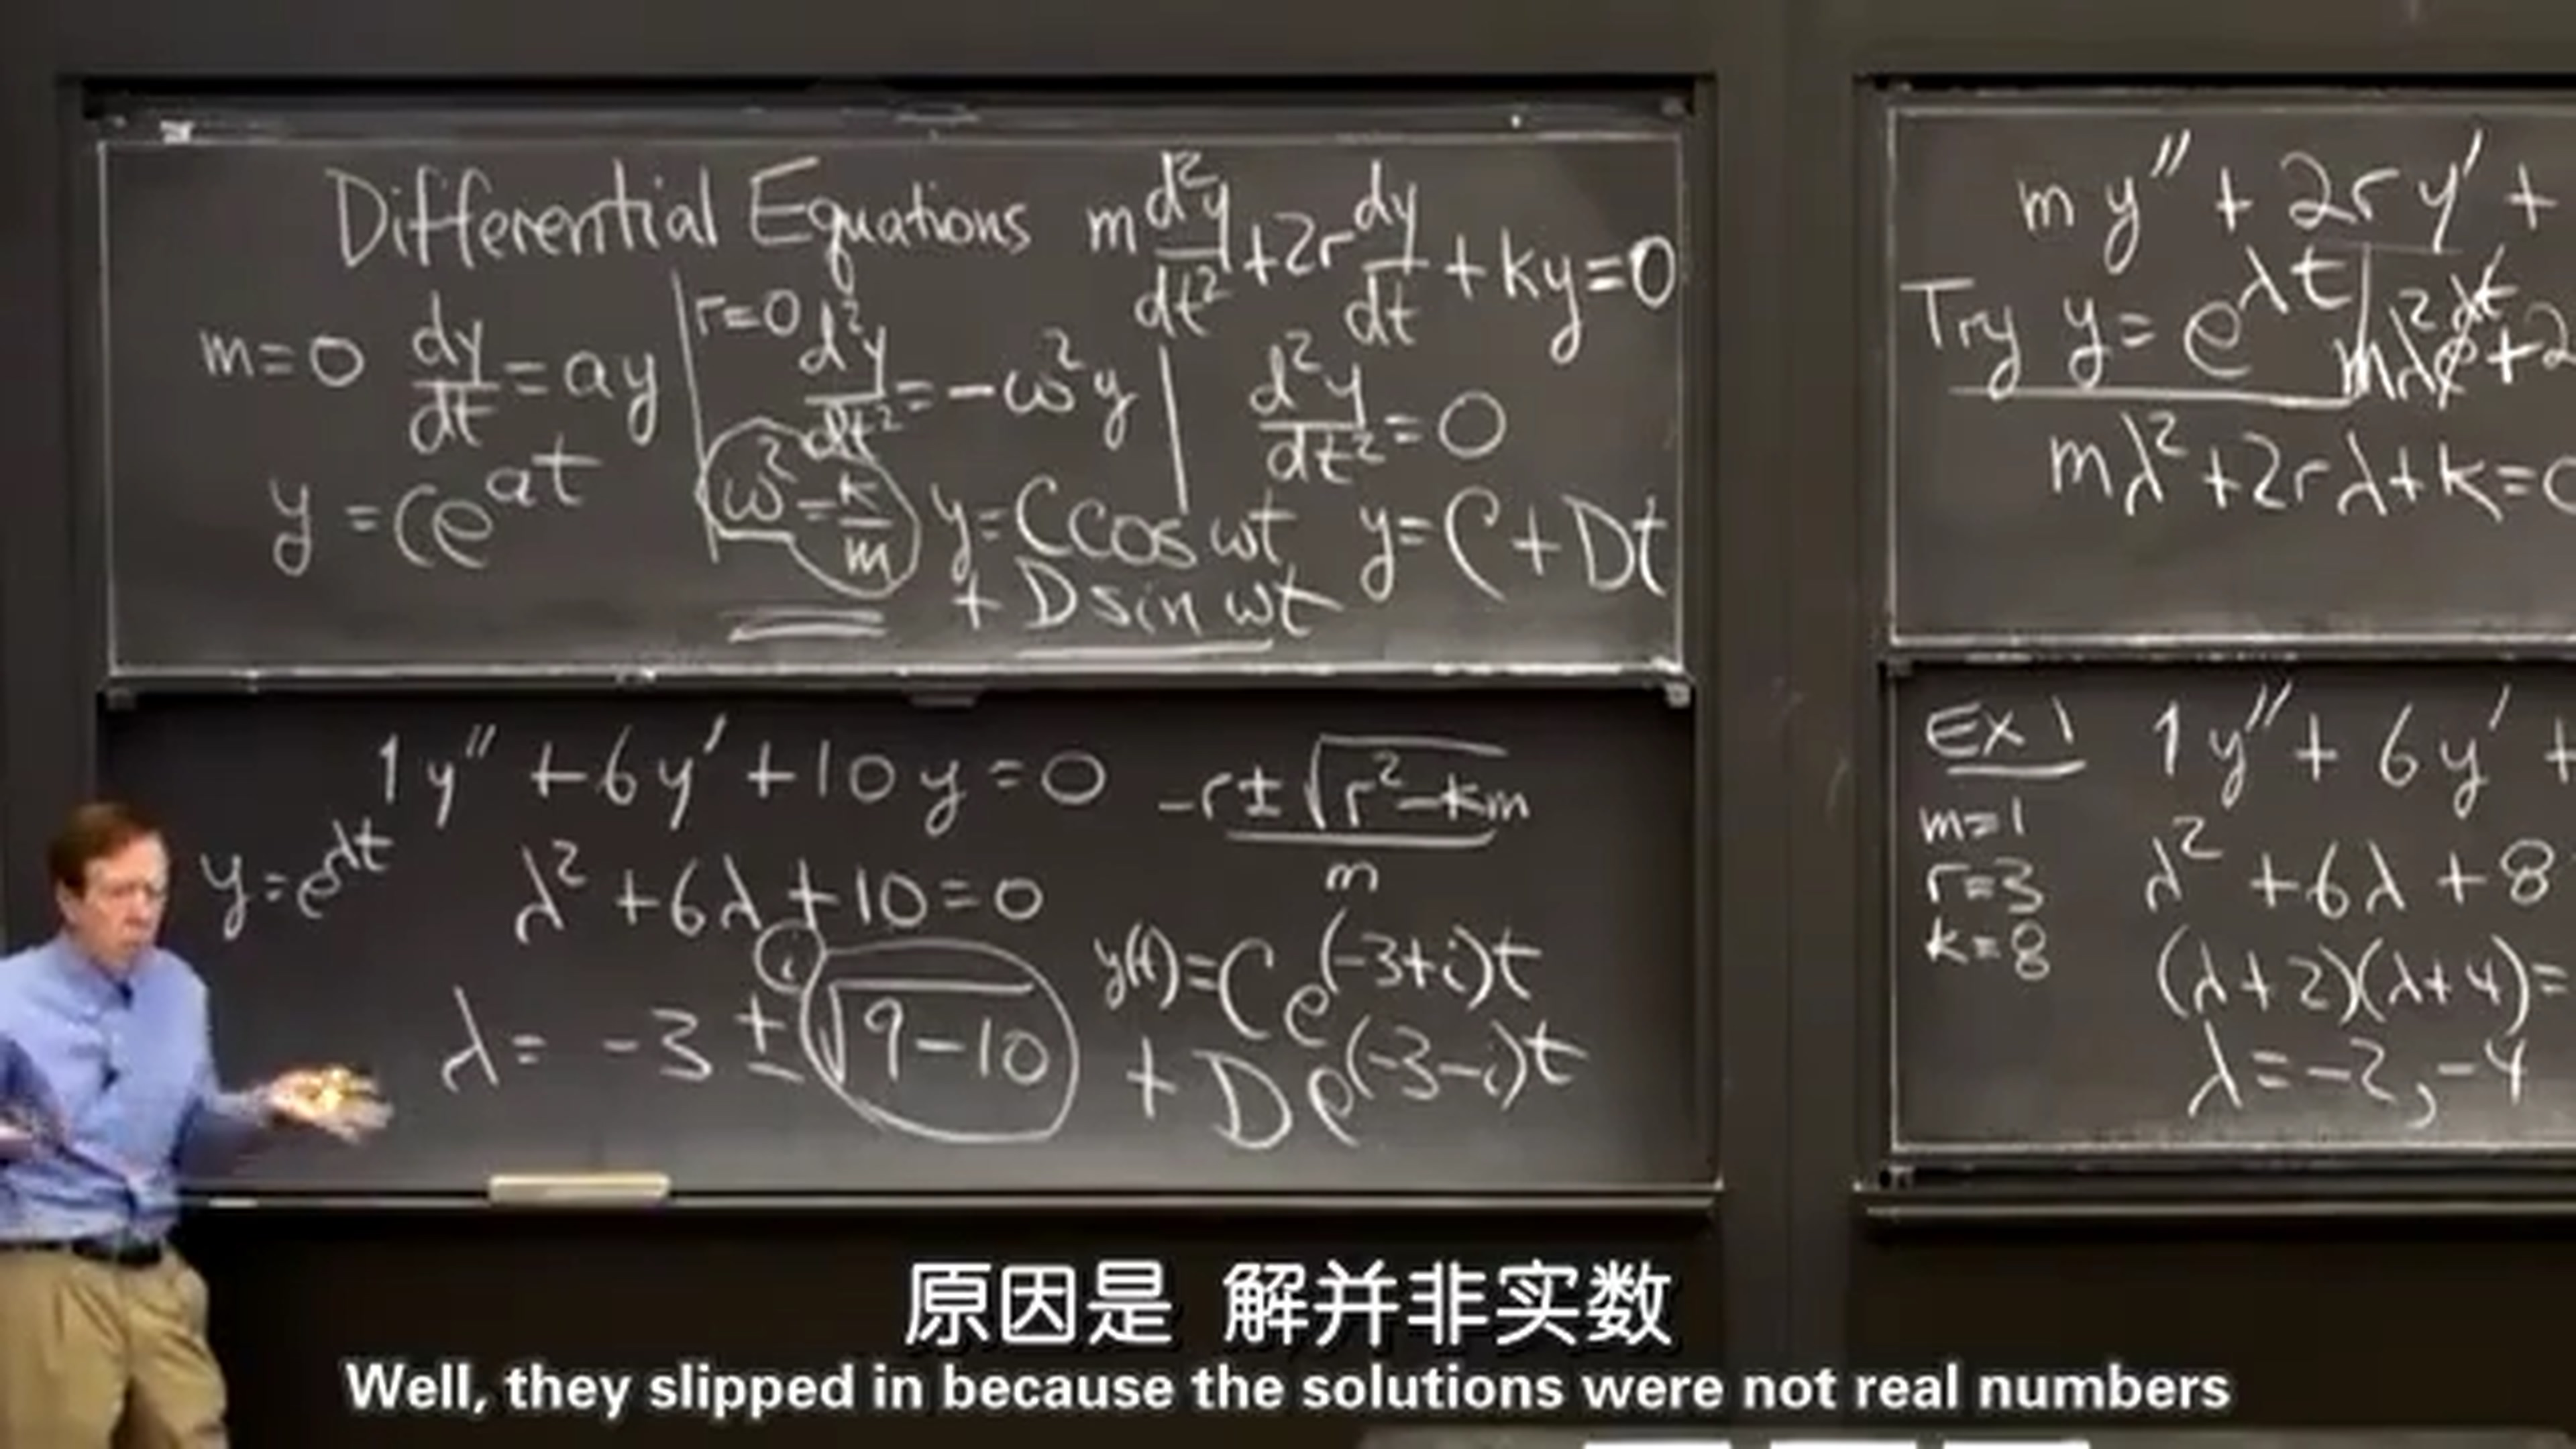 Differential Equations m d²y/dt² + 2r dy/dt + ky = 0
m=0 dy/dt = ay
y = Ce^{at}
r=0 d²y/dt² = -ω²y
ω² = k/m
y = C cos ωt
+ D sin ωt
d²y/dt² = 0
y = C + Dt
1y'' + 6y' + 10y = 0
y = e^{λt}
λ² + 6λ + 10 = 0
λ = -3 ± √(9-10)
i
-r ± √(r² - km)
m
y(t) = Ce^{(-3+i)t}
+ De^{(-3-i)t}
my'' + 2ry' +
Try y = e^{λt} mλ²e^{λt} + 2
mλ² + 2rλ + k = 0
EX 1 1y'' + 6y' +
m=1
r=3
k=8
λ² + 6λ + 8
(λ+2)(λ+4) =
λ = -2, -4
原因是 解并非实数
Well, they slipped in because the solutions were not real numbers